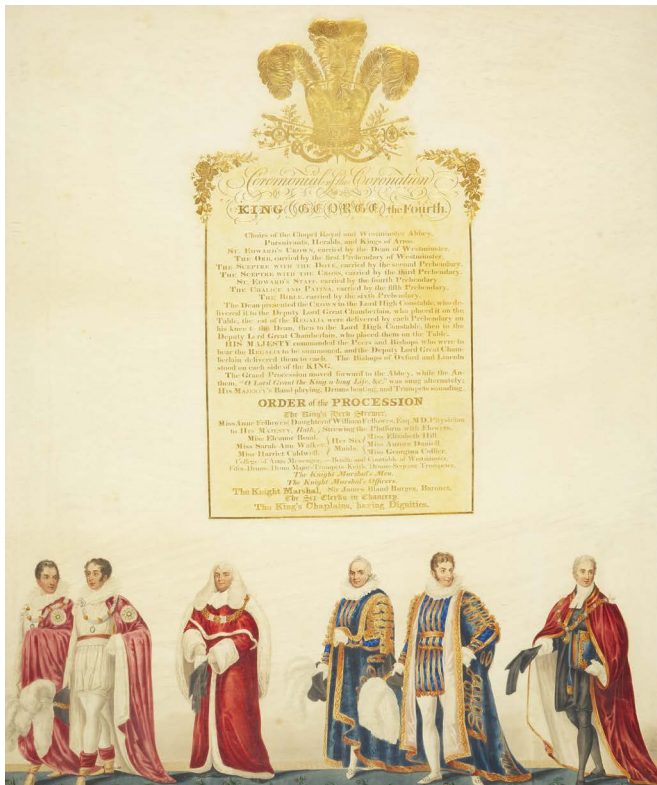 Ceremonial of the Coronation
OF HIS MOST
KING GEORGE the Fourth.
Choirs of the Chapel Royal and Westminster Abbey.
Pursuivants, Heralds, and Kings of Arms.
St. Edward's Crown, carried by the Dean of Westminster.
The Orb, carried by the first Prebendary of Westminster.
The Sceptre with the Dove, carried by the second Prebendary.
The Sceptre with the Cross, carried by the third Prebendary.
St. Edward's Staff, carried by the fourth Prebendary.
The Chalice and Patina, carried by the fifth Prebendary.
The Bible, carried by the sixth Prebendary.
The Dean presented the Crown to the Lord High Constable, who de-
livered it to the Deputy Lord Great Chamberlain, who placed it on the
Table, the rest of the Regalia were delivered by each Prebendary on
his knee to the Dean, then to the Lord High Constable, then to the
Deputy Lord Great Chamberlain, who placed them on the Table.
HIS MAJESTY commanded the Peers and Bishops who were to
bear the Regalia to be summoned, and the Deputy Lord Great Cham-
berlain delivered them to each. The Bishops of Oxford and Lincoln
stood on each side of the KING.
The Grand Procession moved forward to the Abbey, while the An-
them, "O Lord Grant the King a long Life, &c." was sung alternately;
His Majesty's Band playing, Drums beating, and Trumpets sounding.
ORDER of the PROCESSION
The King's Herb Strewer,
Miss Anne Fellowes, Daughter of William Fellowes, Esq. M.D. Physician
to His Majesty, Strewing the Platform with Flowers.
Miss Eleanor Bond. Miss Elizabeth Hill.
Miss Sarah Ann Walker. Her Six Maids. Miss Daniell.
Miss Harriet Caldwell. Miss Georgina Collier.
College of Arms Messenger. High Constable of Westminster.
Fife. Drums. Drum Major. Trumpets. Kettle Drums. Serjeant Trumpeter.
The Knight Marshal's Men.
The Knight Marshal's Officers.
The Knight Marshal, Sir James Bland Burges, Baronet.
The Six Clerks in Chancery.
The King's Chaplains, having Dignities.